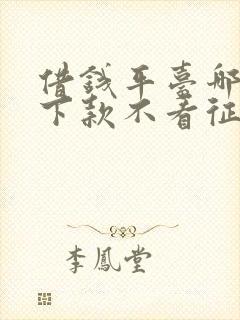 借錢平臺哪
下款不看征
李鳳堂